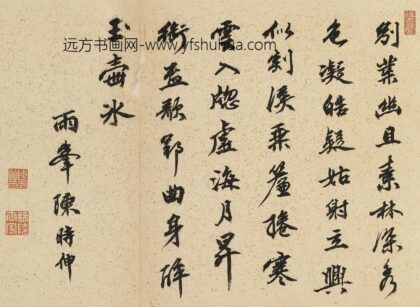 別業幽且素林深秀
色凝皓疑姑射立興
似剡溪乘簾捲寒
雲入牕虛海月昇
銜盃歌郢曲身醉
玉壺冰
雨峯陳時伸
远方书画网